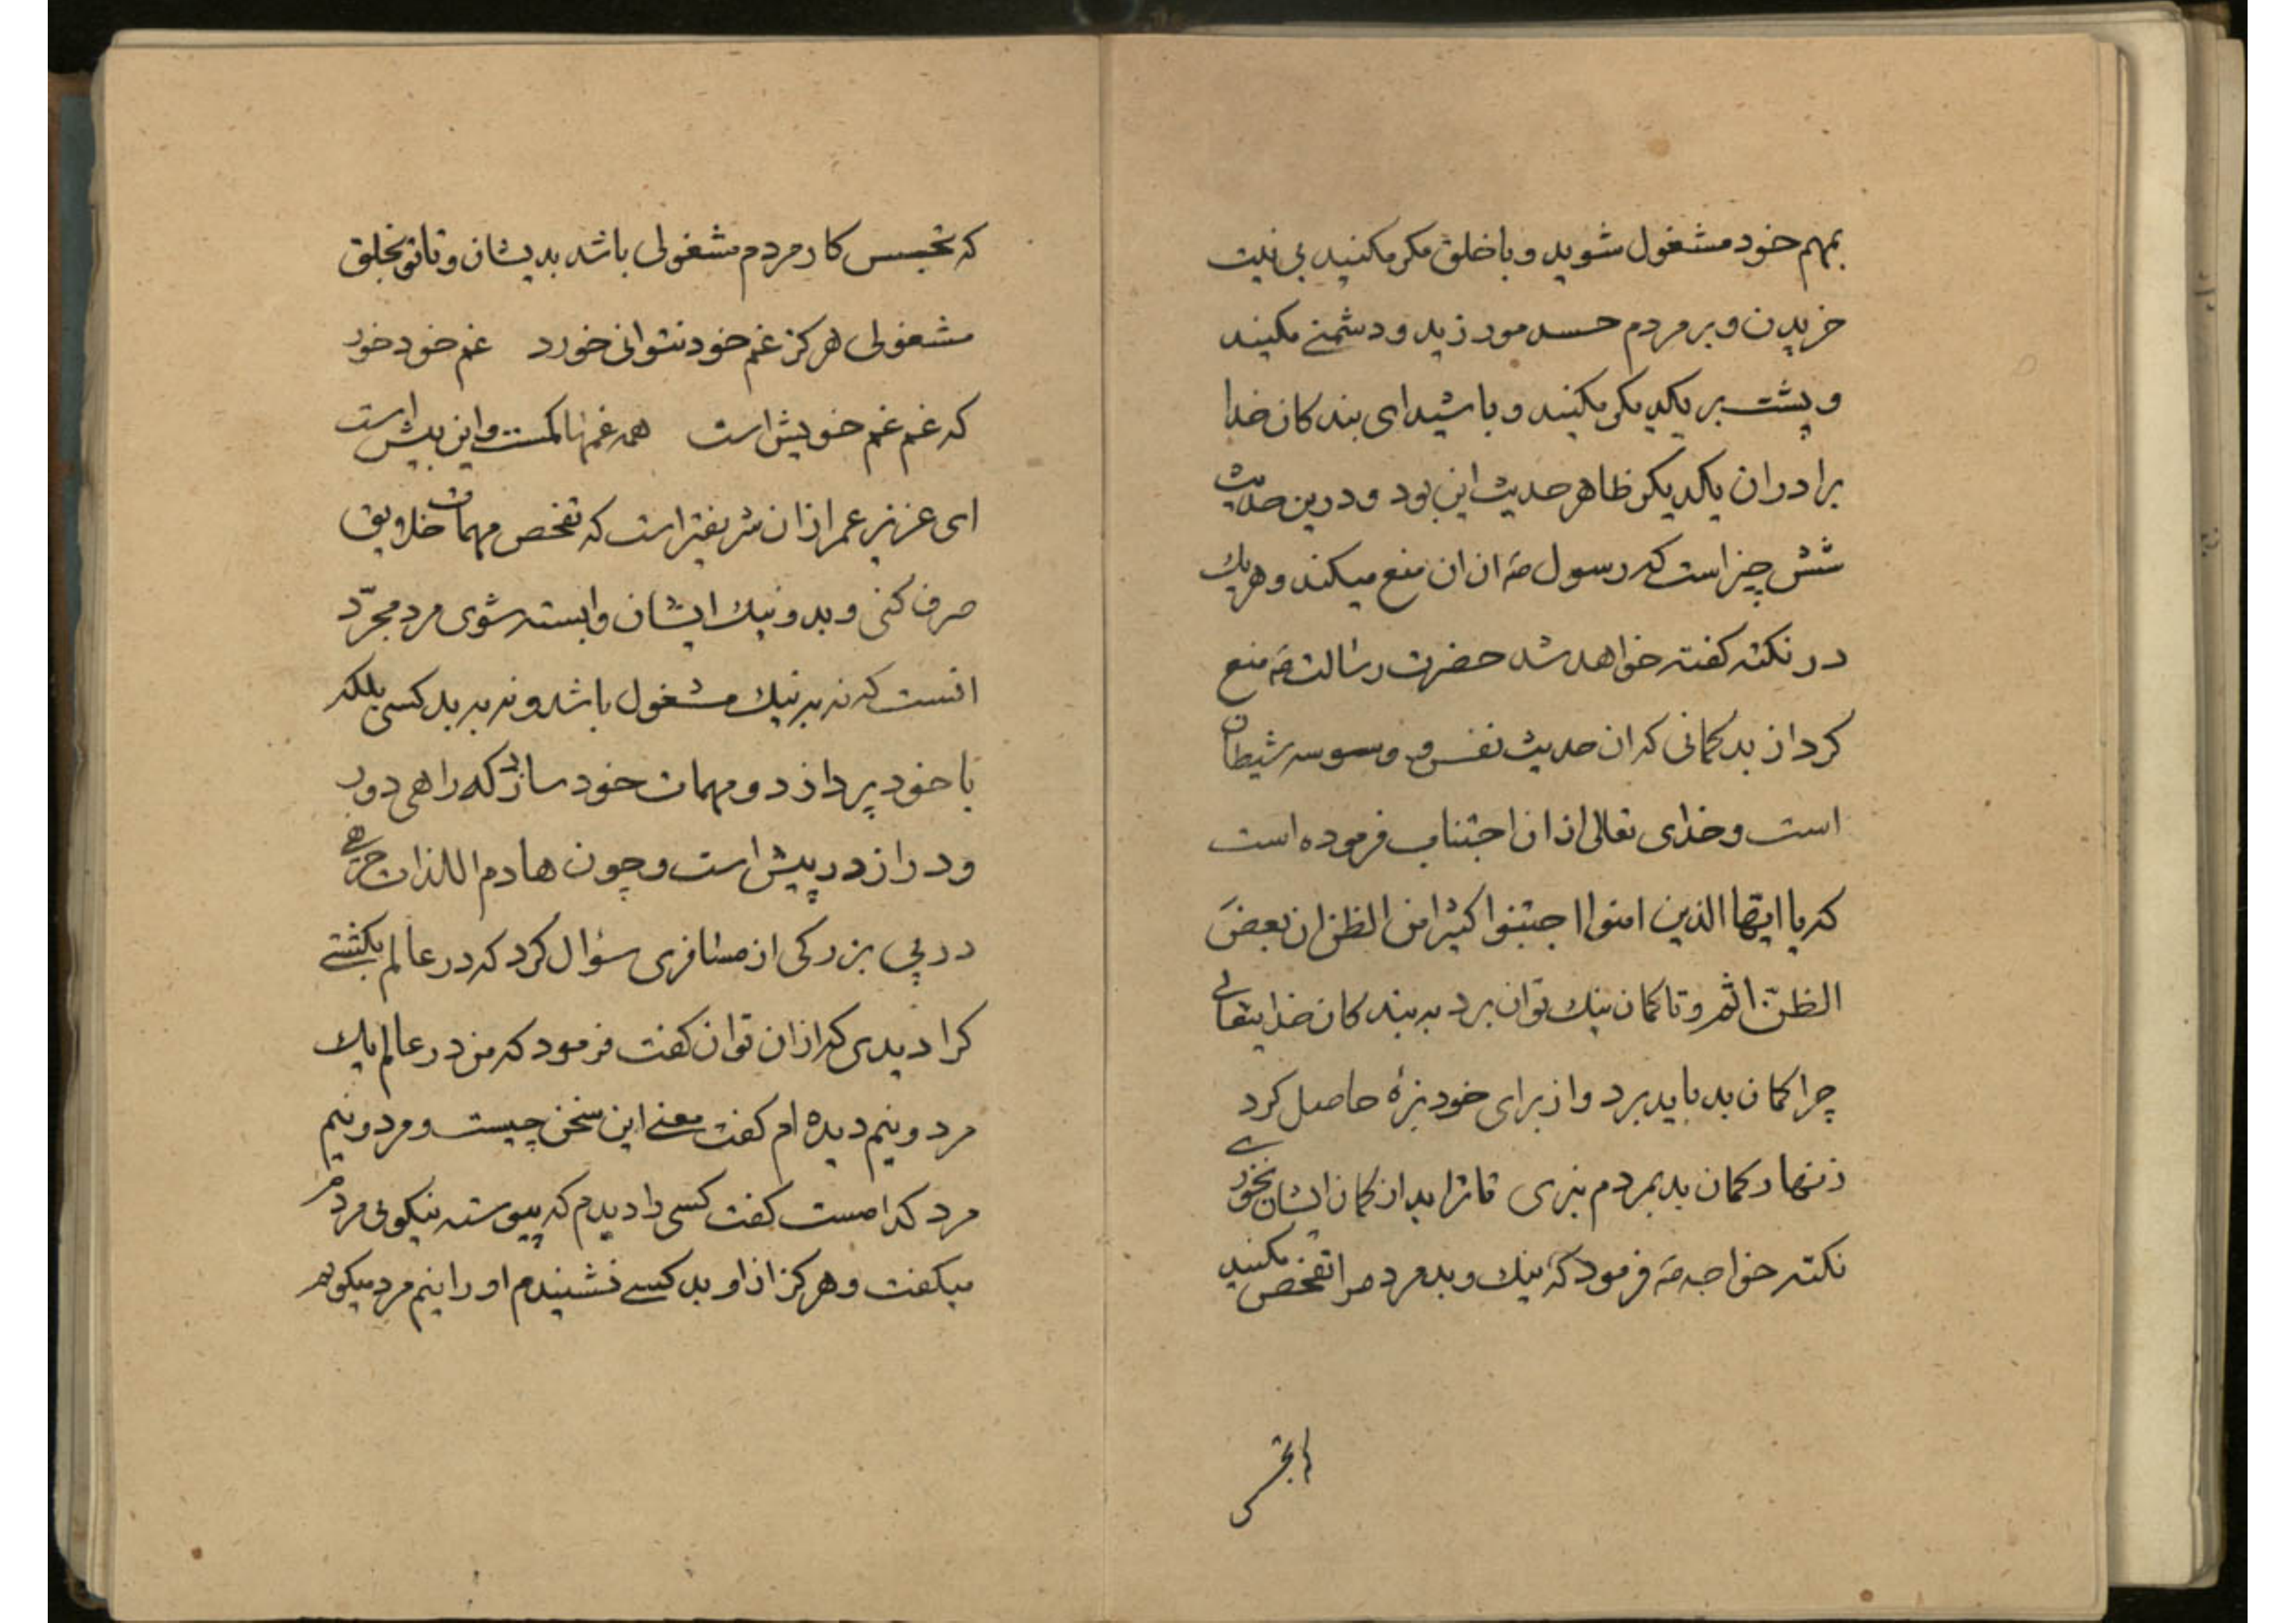 بمهم خود مشغول شوید و با خلق مکر مکنید بی نیت
خریدن و بر مردم حسد مورزید و دشمنے مکنید
و پشت بر یکدیکر مکنید و باشید ای بندکان خدا
برادران یکدیکر ظاهر حدیث این بود و درین حدیث
شش چیز است که رسول صه ازان منع میکند و هریك
در نکته کفته خواهد شد حضرت رسالت صه منع
کرد از بدکمانی که ان حدیث نفس و وسوسه شیطان
است و خدای تعالی ازان اجتناب فرموده است
که یا ایّها الذین امنوا اجتنبوا کثیرا من الظن ان بعضَ
الظنّ اثم و تا کمان نیك توان برد به بندکان خدایتعالی
چرا کمان بد باید برد و از برای خود بزهٔ حاصل کرد
زنهار کمان بد بمردم نبری تا ترا بد از کمان ایشان نخورے
نکته خواجه صه فرمود که نیك و بد مردم را تفحص مکنید
که تجسس
که تجسس کار مردم مشغولی باشد بدیشان و تا تو بخلق
مشغولی هرکز غم خود نتوانی خورد غم خود خور
که غم غم خویش است همه غمها کمست و این بیش است
ای عزیز عمر ازان شریفتر است که تفحص مهمات خلایق
صرف کنی و بد و نیك ایشان وابسته شوی مرد مجرّد
انست که نه به نیك مشغول باشد و نه به بد کسی بلکه
با خود پردازد و مهمات خود سازد که راهی دور
و دراز در پیش است و چون هادم اللذات حریفی
در پی بزرکی از مسافری سؤال کرد که در عالم بکشتے
کرا دیدی که ازان توان کفت فرمود که من در عالم یك
مرد و نیم دیده ام کفت معنے این سخن چیست و مرد و نیم
مرد کدامست کفت کسی را دیدم که پیوسته نیکوئی مردم
میکفت و هرکز ازاو بد کسے نشنیدم او را نیم مرد میکویم